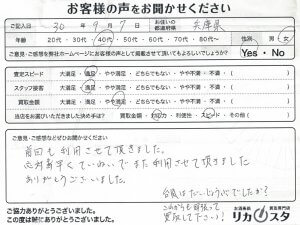 お客様の声をお聞かせください
ご記入日 30年 9月 7日 お住いの都道府県 兵庫県
年齢 20代・30代・40代・50代・60代・70代・80代～ 性別 男・女
ご意見・ご感想を弊社ホームページにお客様の声として掲載させて頂いてもよろしいでしょうか? Yes・No
査定スピード 大満足・満足・やや満足・どちらでもない・やや不満・不満・( )
スタッフ接客 大満足・満足・やや満足・どちらでもない・やや不満・不満・( )
買取金額 大満足・満足・やや満足・どちらでもない・やや不満・不満・( )
当店をお選びいただきました決め手は? 買取金額・利便性・スピード・その他( )
ご意見・ご感想などぜひお聞かせください
前回も利用させて頂きました。
応対も早くていねいで また利用させて頂きました
ありがとうございました。
台風は大じょうぶでしたか?
これからも頑張って
買取して下さい!
ご協力ありがとうございました。
この度は誠にありがとうございました。
お酒高級 買取専門店
リカスタ